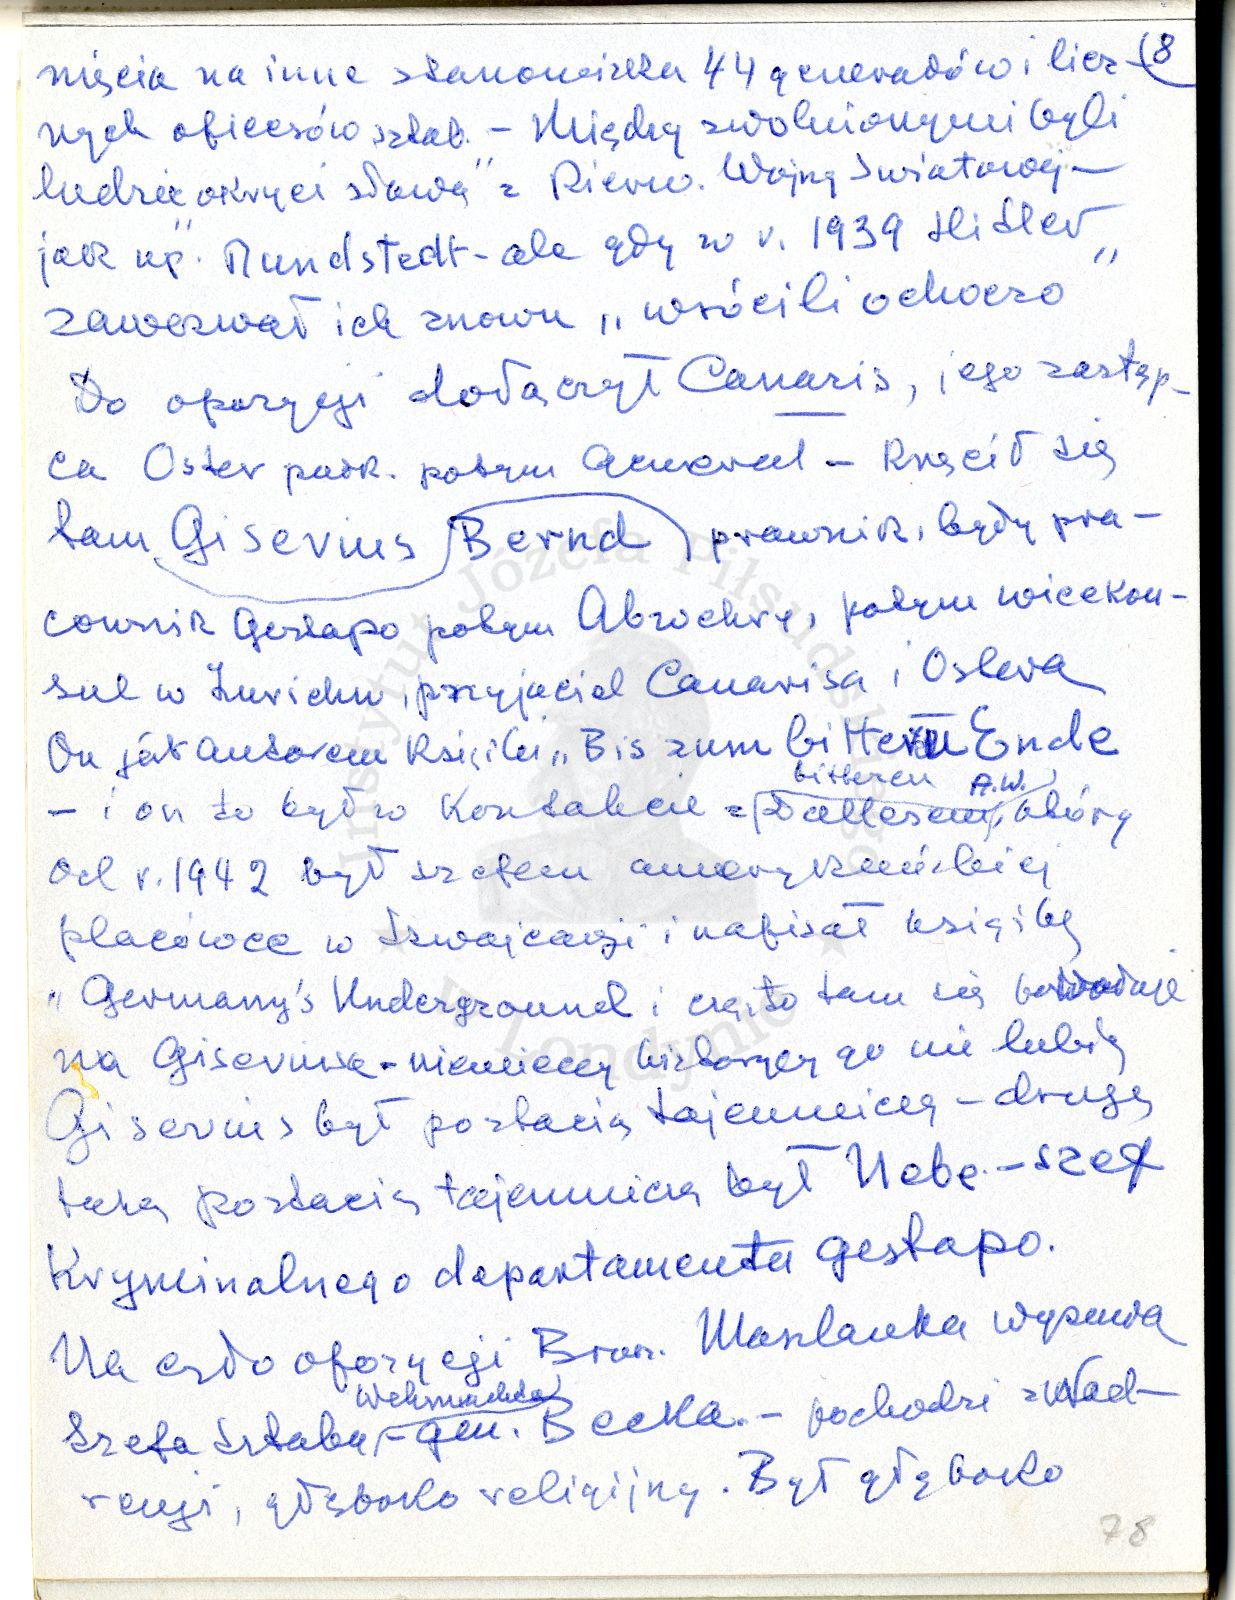 (8
nięcia na inne stanowiska 44 generałów i licz-
nych oficerów sztab. – Między zwolnionymi byli
ludzie „okryci sławą" z Pierw. Wojny Światowej –
jak np. Rundstedt – ale gdy w r. 1939 Hitler
zawezwał ich znowu „wrócili ochoczo"
Do opozycji dołączył Canaris, jego zastęp-
ca Oster pułk. potym Generał – Kręcił się
tam Gisevius Bernd prawnik, były pra-
cownik Gestapo potym Abwehry, potym wicekon-
sul w Zurichu, przyjaciel Canarisa i Ostera
On jest autorem Książki „Bis zum bittern Ende
bitteren A.W.
– i on to był w Kontakcie z Dullesem, który
od r. 1942 był szefem amerykańskiej
placówce w Szwajcarji i napisał książkę
„Germany's Underground i często tam się powołuje
na Giseviusa – niemieccy historycy go nie lubią
Gisevius był postacią tajemniczą – drugą
taką postacią tajemniczą był Nebe. – szef
Kryminalnego departamentu gestapo.
Na czoło opozycji Bron. Maszlanka wysuwa
Wehrmachtu
Szefa Sztabu, – gen. Becka. – pochodzi z Nad-
renji, głęboko religijny. Był głęboko
78
Instytut Józefa Piłsudskiego
w Londynie